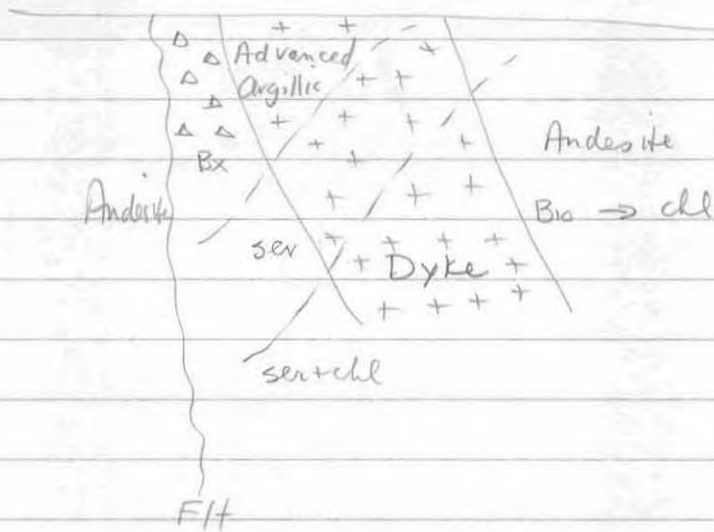 Advanced
Argillic
Bx
Andesite
Andesite
Bio → chl
ser
Dyke
ser+chl
Flt